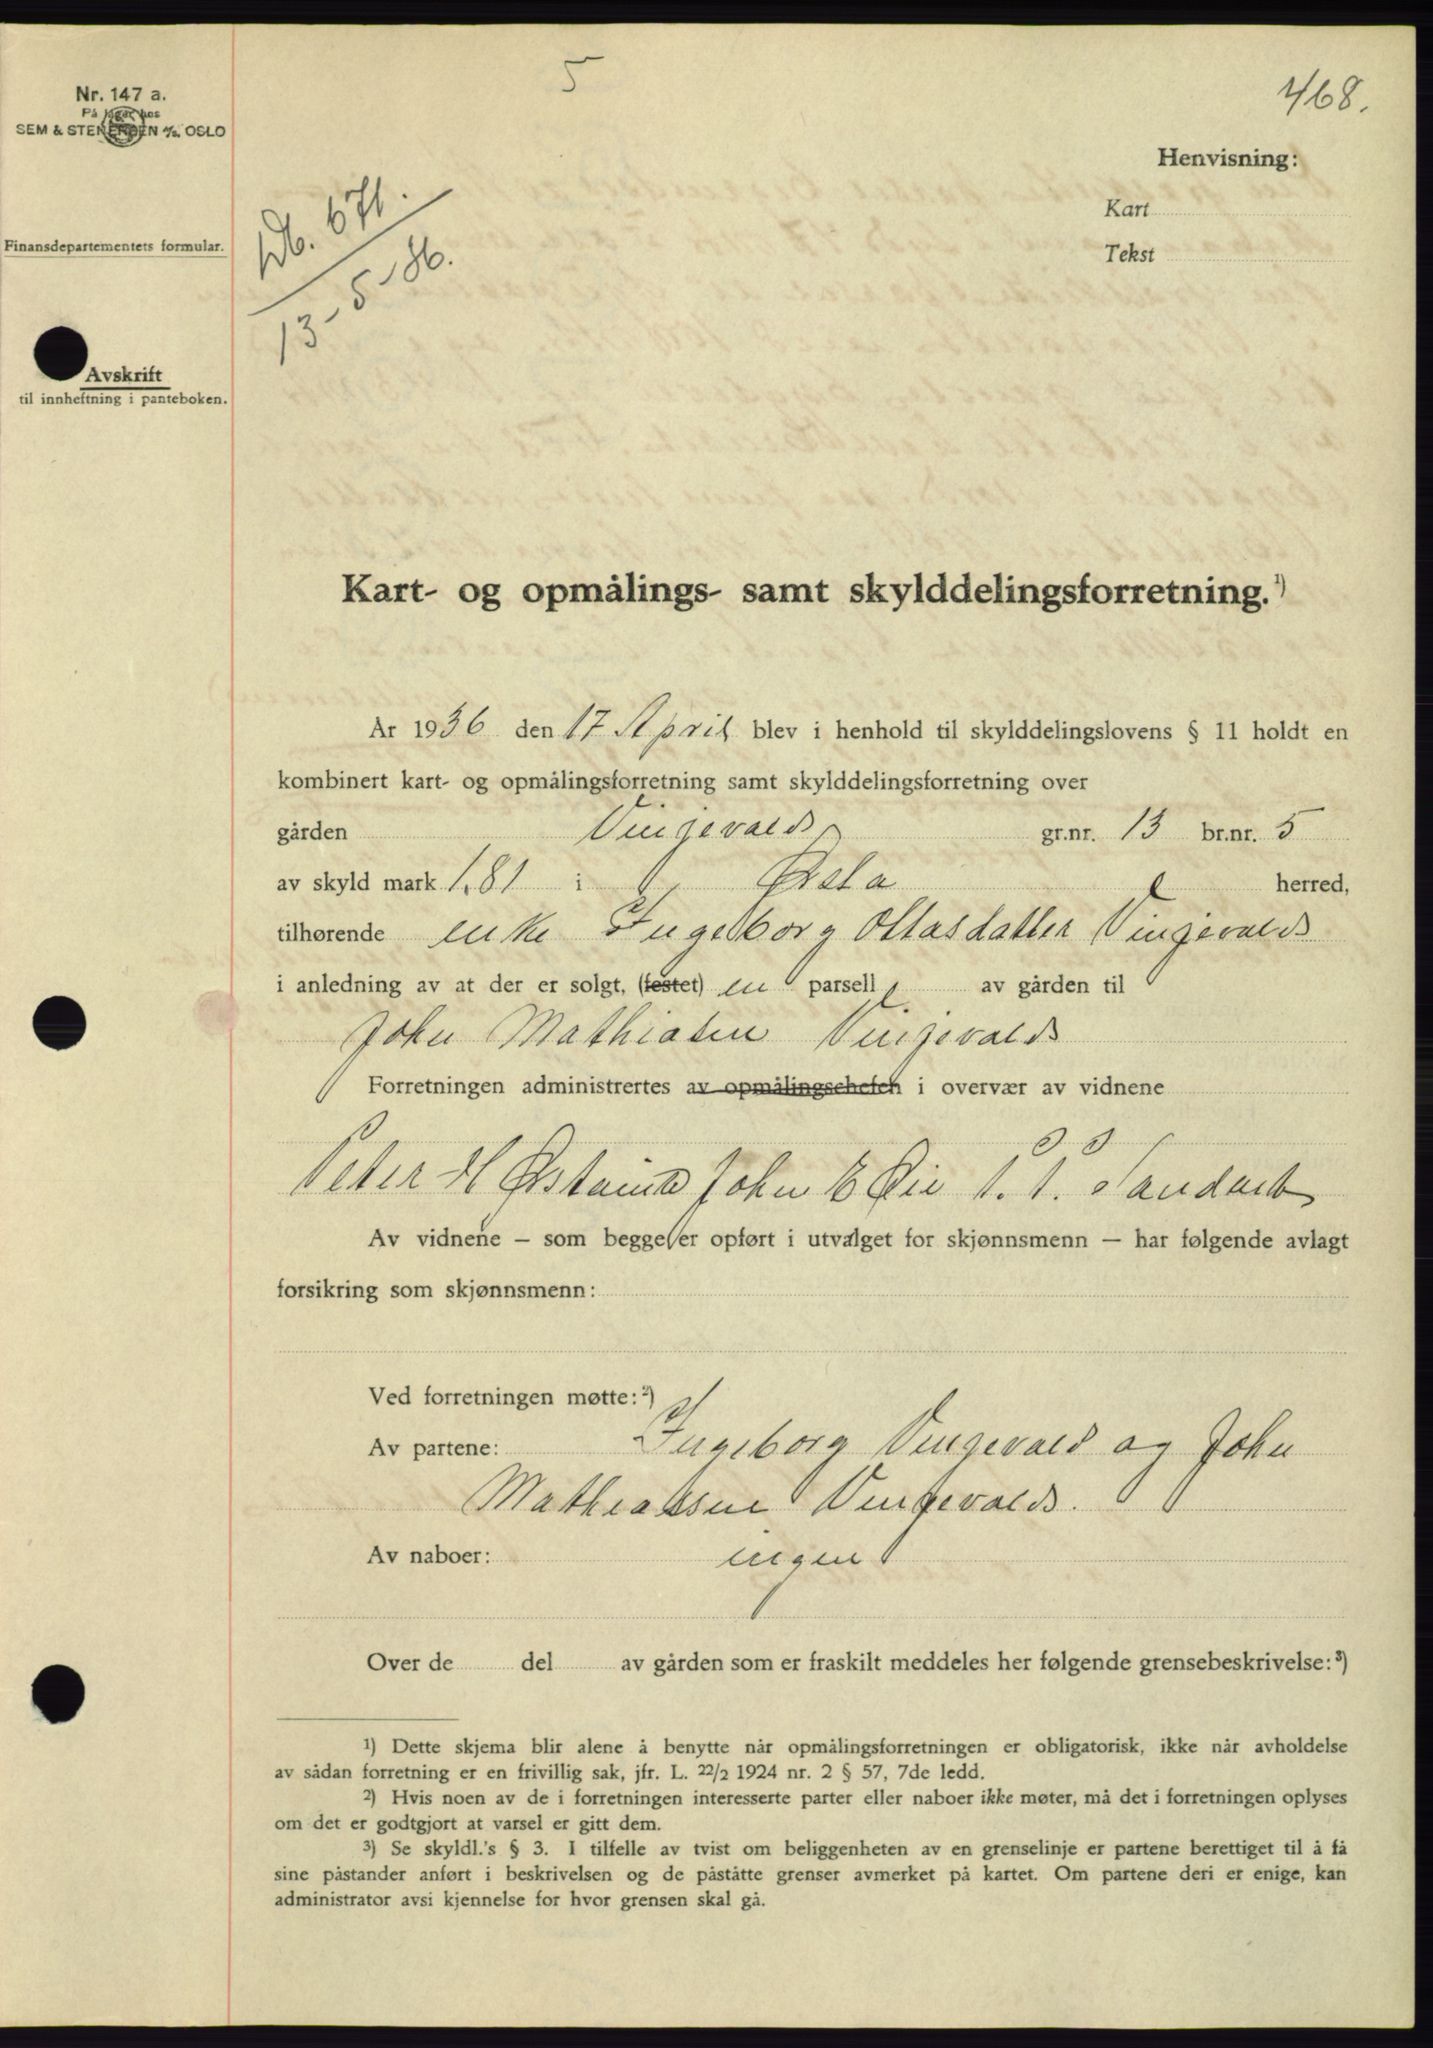 5
468.
Nr. 147 a.
På lager hos
SEM & STENERSEN A/S. OSLO
Henvisning:
Kart
Tekst
Finansdepartementets formular.
Db. 671.
13-5-36.
Avskrift
til innheftning i panteboken.
Kart- og opmålings- samt skylddelingsforretning.¹)
År 1936 den 17 April blev i henhold til skylddelingslovens § 11 holdt en
kombinert kart- og opmålingsforretning samt skylddelingsforretning over
gården Vingevald gr.nr. 13 br.nr. 5
av skyld mark 1.81 i Ørsta herred,
tilhørende enke Ingeborg Ottasdatter Vingevald
i anledning av at der er solgt, (festet) en parsell av gården til
John Mathiasen Vingevald
Forretningen administrertes av opmålingschefen i overvær av vidnene
Peter H Ørstavik John E Øie P. P. Sandvik
Av vidnene – som begge er opført i utvalget for skjønnsmenn – har følgende avlagt
forsikring som skjønnsmenn:
Ved forretningen møtte:²)
Av partene: Ingeborg Vingevald og John
Mathiassen Vingevald.
Av naboer: ingen
Over de del av gården som er fraskilt meddeles her følgende grensebeskrivelse:³)
¹) Dette skjema blir alene å benytte når opmålingsforretningen er obligatorisk, ikke når avholdelse
av sådan forretning er en frivillig sak, jfr. L. 22/2 1924 nr. 2 § 57, 7de ledd.
²) Hvis noen av de i forretningen interesserte parter eller naboer ikke møter, må det i forretningen oplyses
om det er godtgjort at varsel er gitt dem.
³) Se skyldl.'s § 3. I tilfelle av tvist om beliggenheten av en grenselinje er partene berettiget til å få
sine påstander anført i beskrivelsen og de påståtte grenser avmerket på kartet. Om partene deri er enige, kan
administrator avsi kjennelse for hvor grensen skal gå.